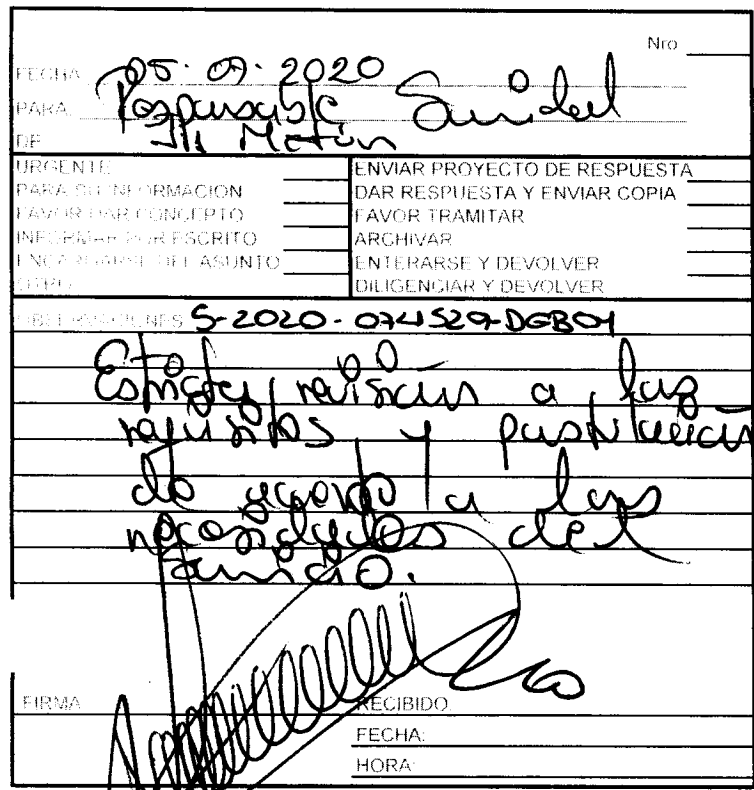 Nro
FECHA 05-09-2020
PARA Responsable Sanidad
DE
URGENTE
PARA SU INFORMACION
FAVOR DAR CONCEPTO
INFORMAR POR ESCRITO
ENCARGARSE DEL ASUNTO
OTRO
ENVIAR PROYECTO DE RESPUESTA
DAR RESPUESTA Y ENVIAR COPIA
FAVOR TRAMITAR
ARCHIVAR
ENTERARSE Y DEVOLVER
DILIGENCIAR Y DEVOLVER
OBSERVACIONES S-2020-074529-DGB04
revisión a los
requisitos y postulación
de acuerdo a las
necesidades del
servicio.
FIRMA
RECIBIDO:
FECHA:
HORA: